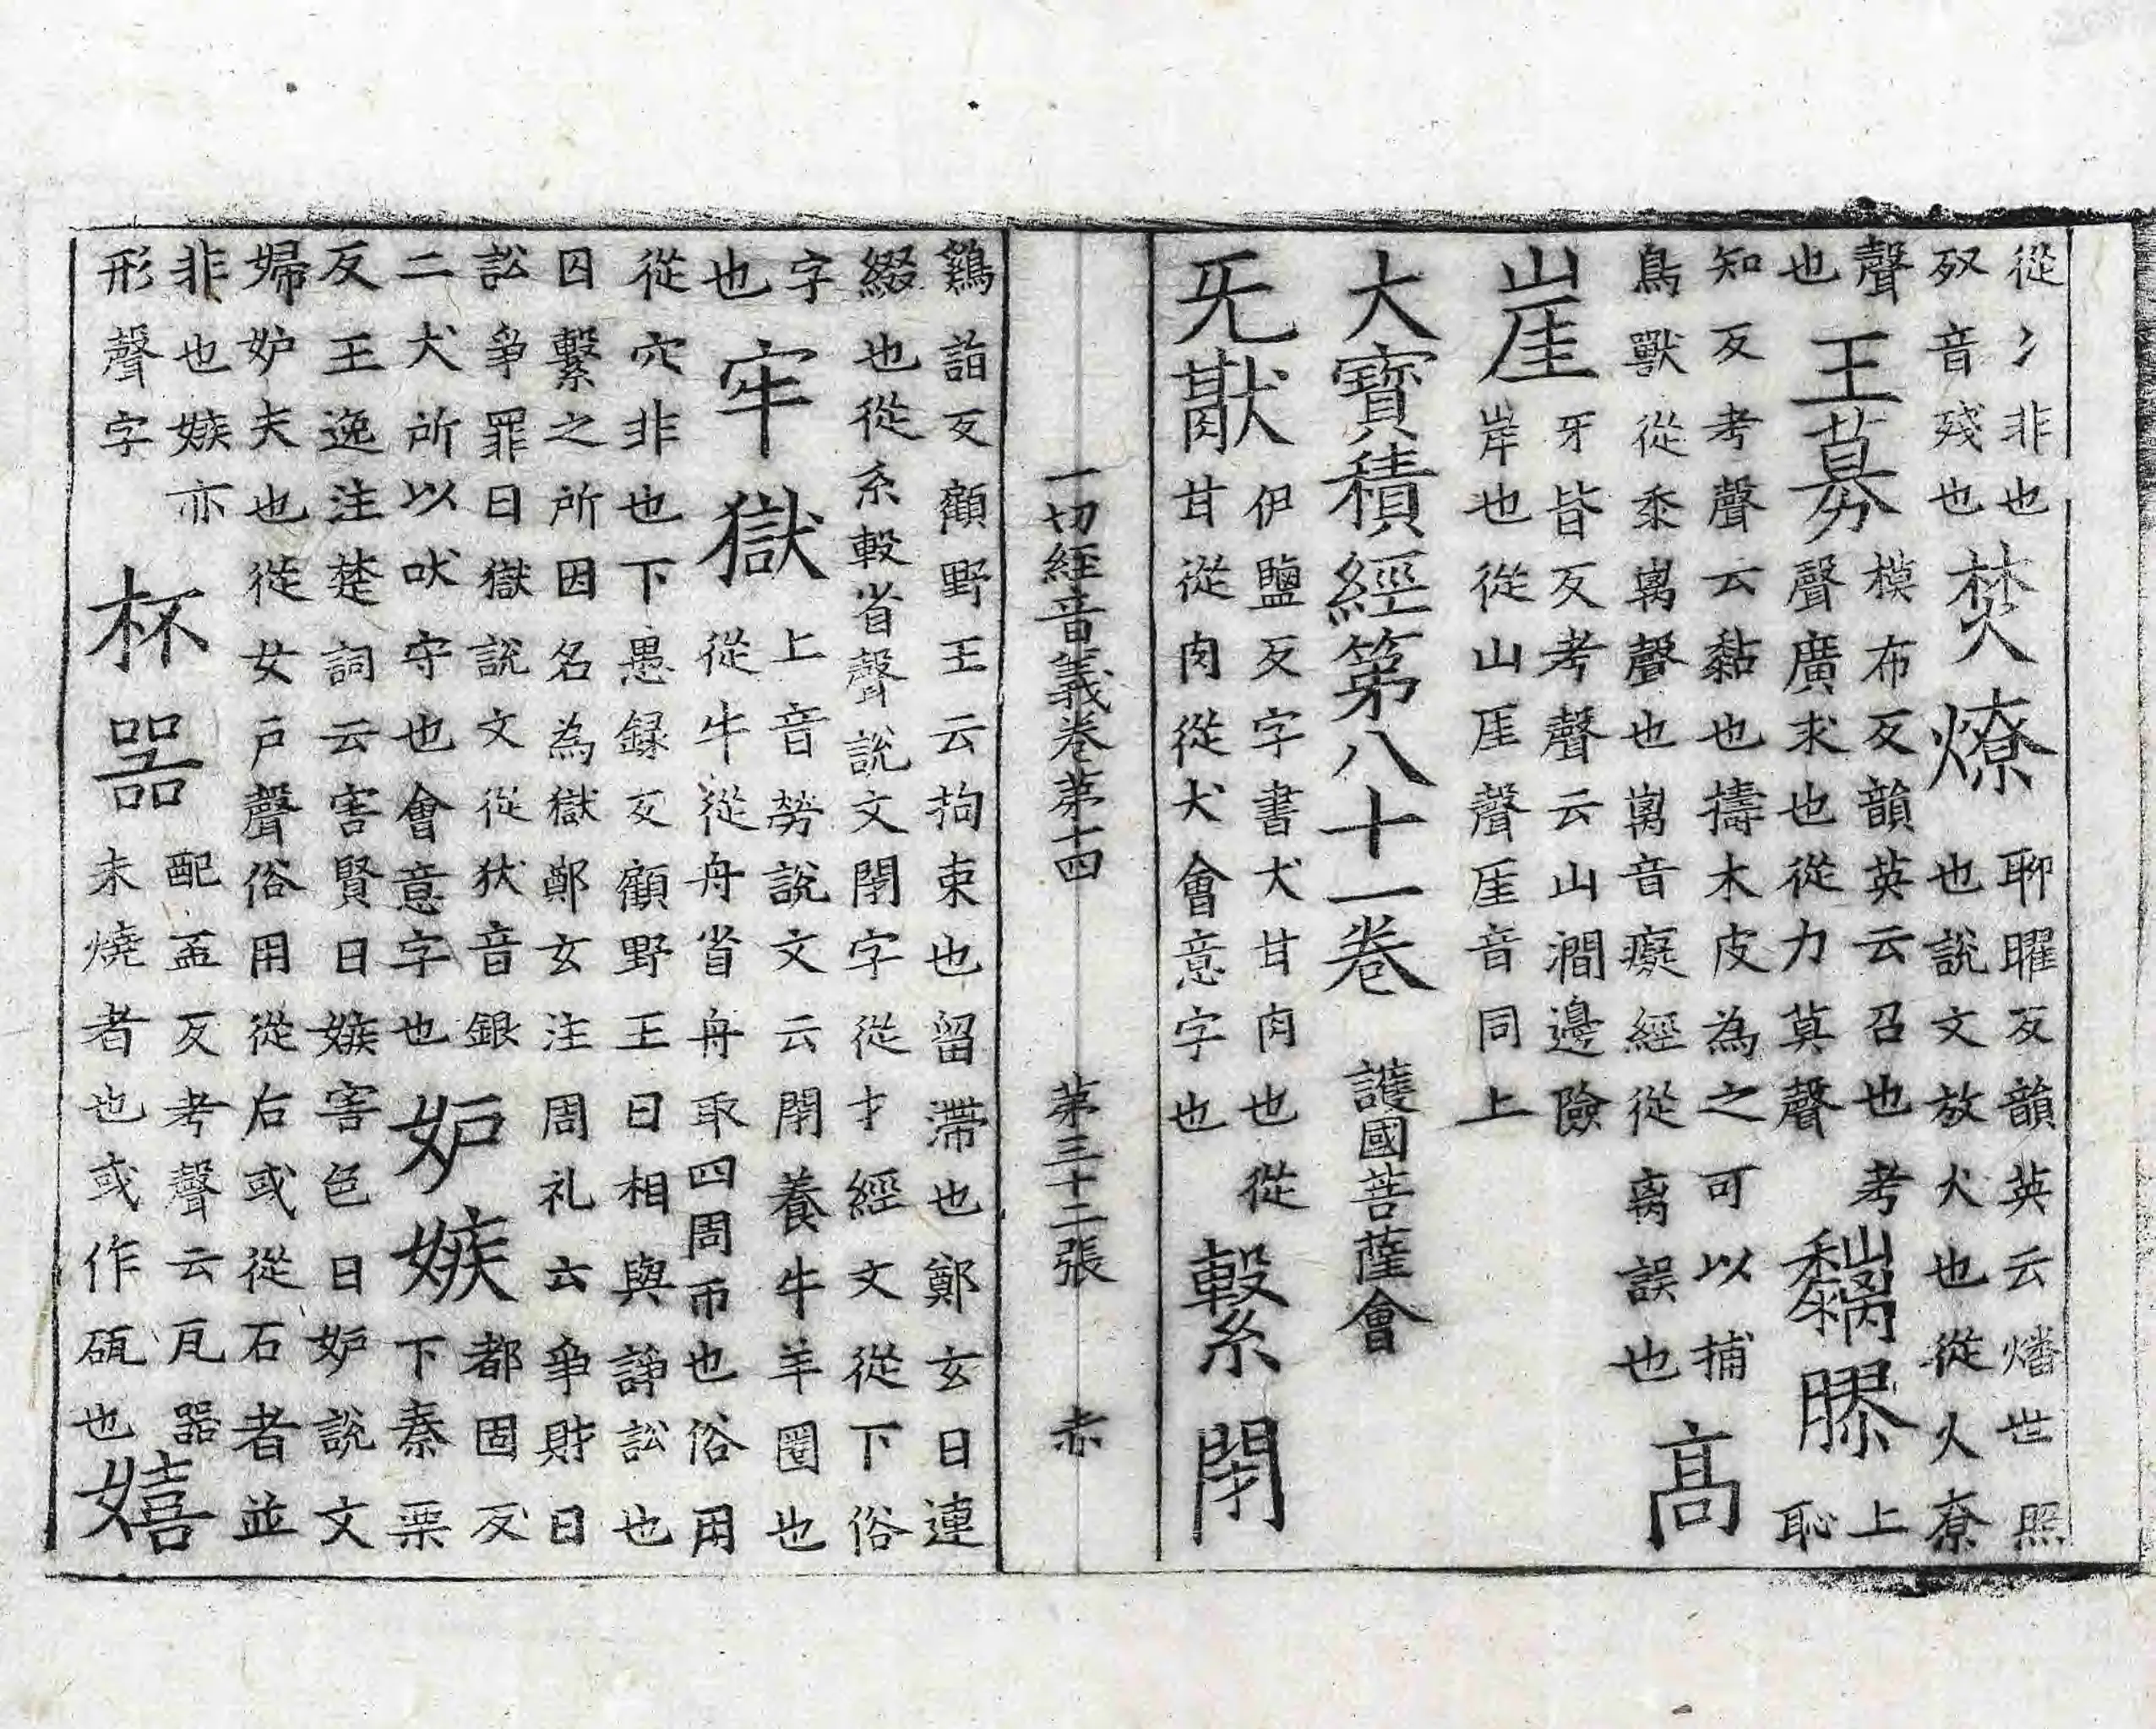 從冫非也歹音殘也焚燎聊曜反韻英云燔世照也說文放犬也從火尞
聲也王募模布反韻英云召也考聲廣求也從力莫聲黐膠上恥
知反考聲云黏也擣木皮為之可以捕鳥獸從黍离聲也离音癡經從离誤也高
崖牙皆反考聲云山澗邊險岸也從山厓聲厓音同上
大寶積經第八十一卷 護國菩薩會
旡猒伊鹽反字書犬甘肉也從甘從肉從犬會意字也繫閇
一切經音義卷第十四 第三十二張 赤
鷄詣反顧野王云拘束也留滯也鄭玄曰連綴也從糸𣪠省聲說文閇字從才經文從下俗
字也牢獄上音勞說文云閑養牛羊圈也從牛從舟省舟取四周帀也俗用
從穴非也下愚録反顧野王曰相與諍訟也囚繫之所因名為獄鄭玄注周礼云爭財曰
訟爭罪曰獄說文從㹜音銀二犬所以吠守也會意字也妒嫉都固反下秦栗
反王逸注楚詞云害賢曰嫉害色曰妒說文婦妒夫也從女戶聲俗用從后或從石者並
非也嫉亦形聲字杯器配盃反考聲云瓦器未燒者也或作㼎也嬉